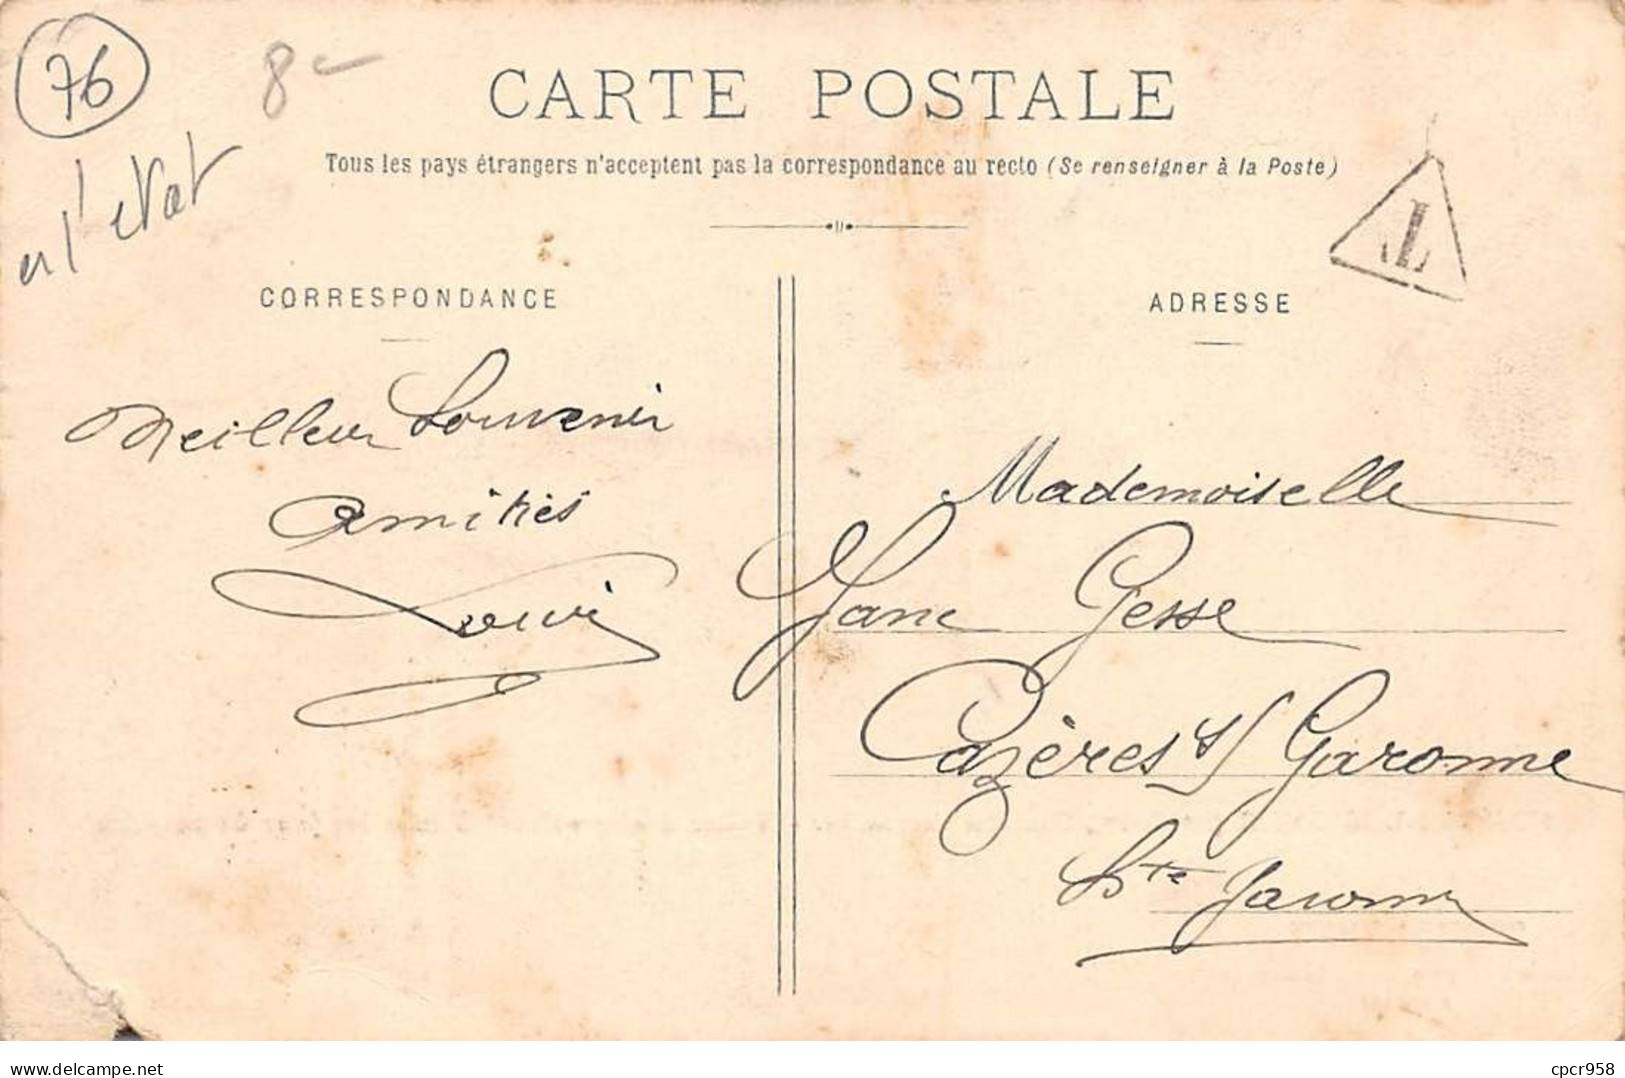 76
8
en l'etat
CARTE POSTALE
Tous les pays étrangers n'acceptent pas la correspondance au recto (Se renseigner à la Poste)
T
CORRESPONDANCE
ADRESSE
Meilleur Souvenir
Amitiés
Louis
Mademoiselle
Jane Gesse
Cazères s/ Garonne
Hte Garonne
delcampe.net
cpcr958